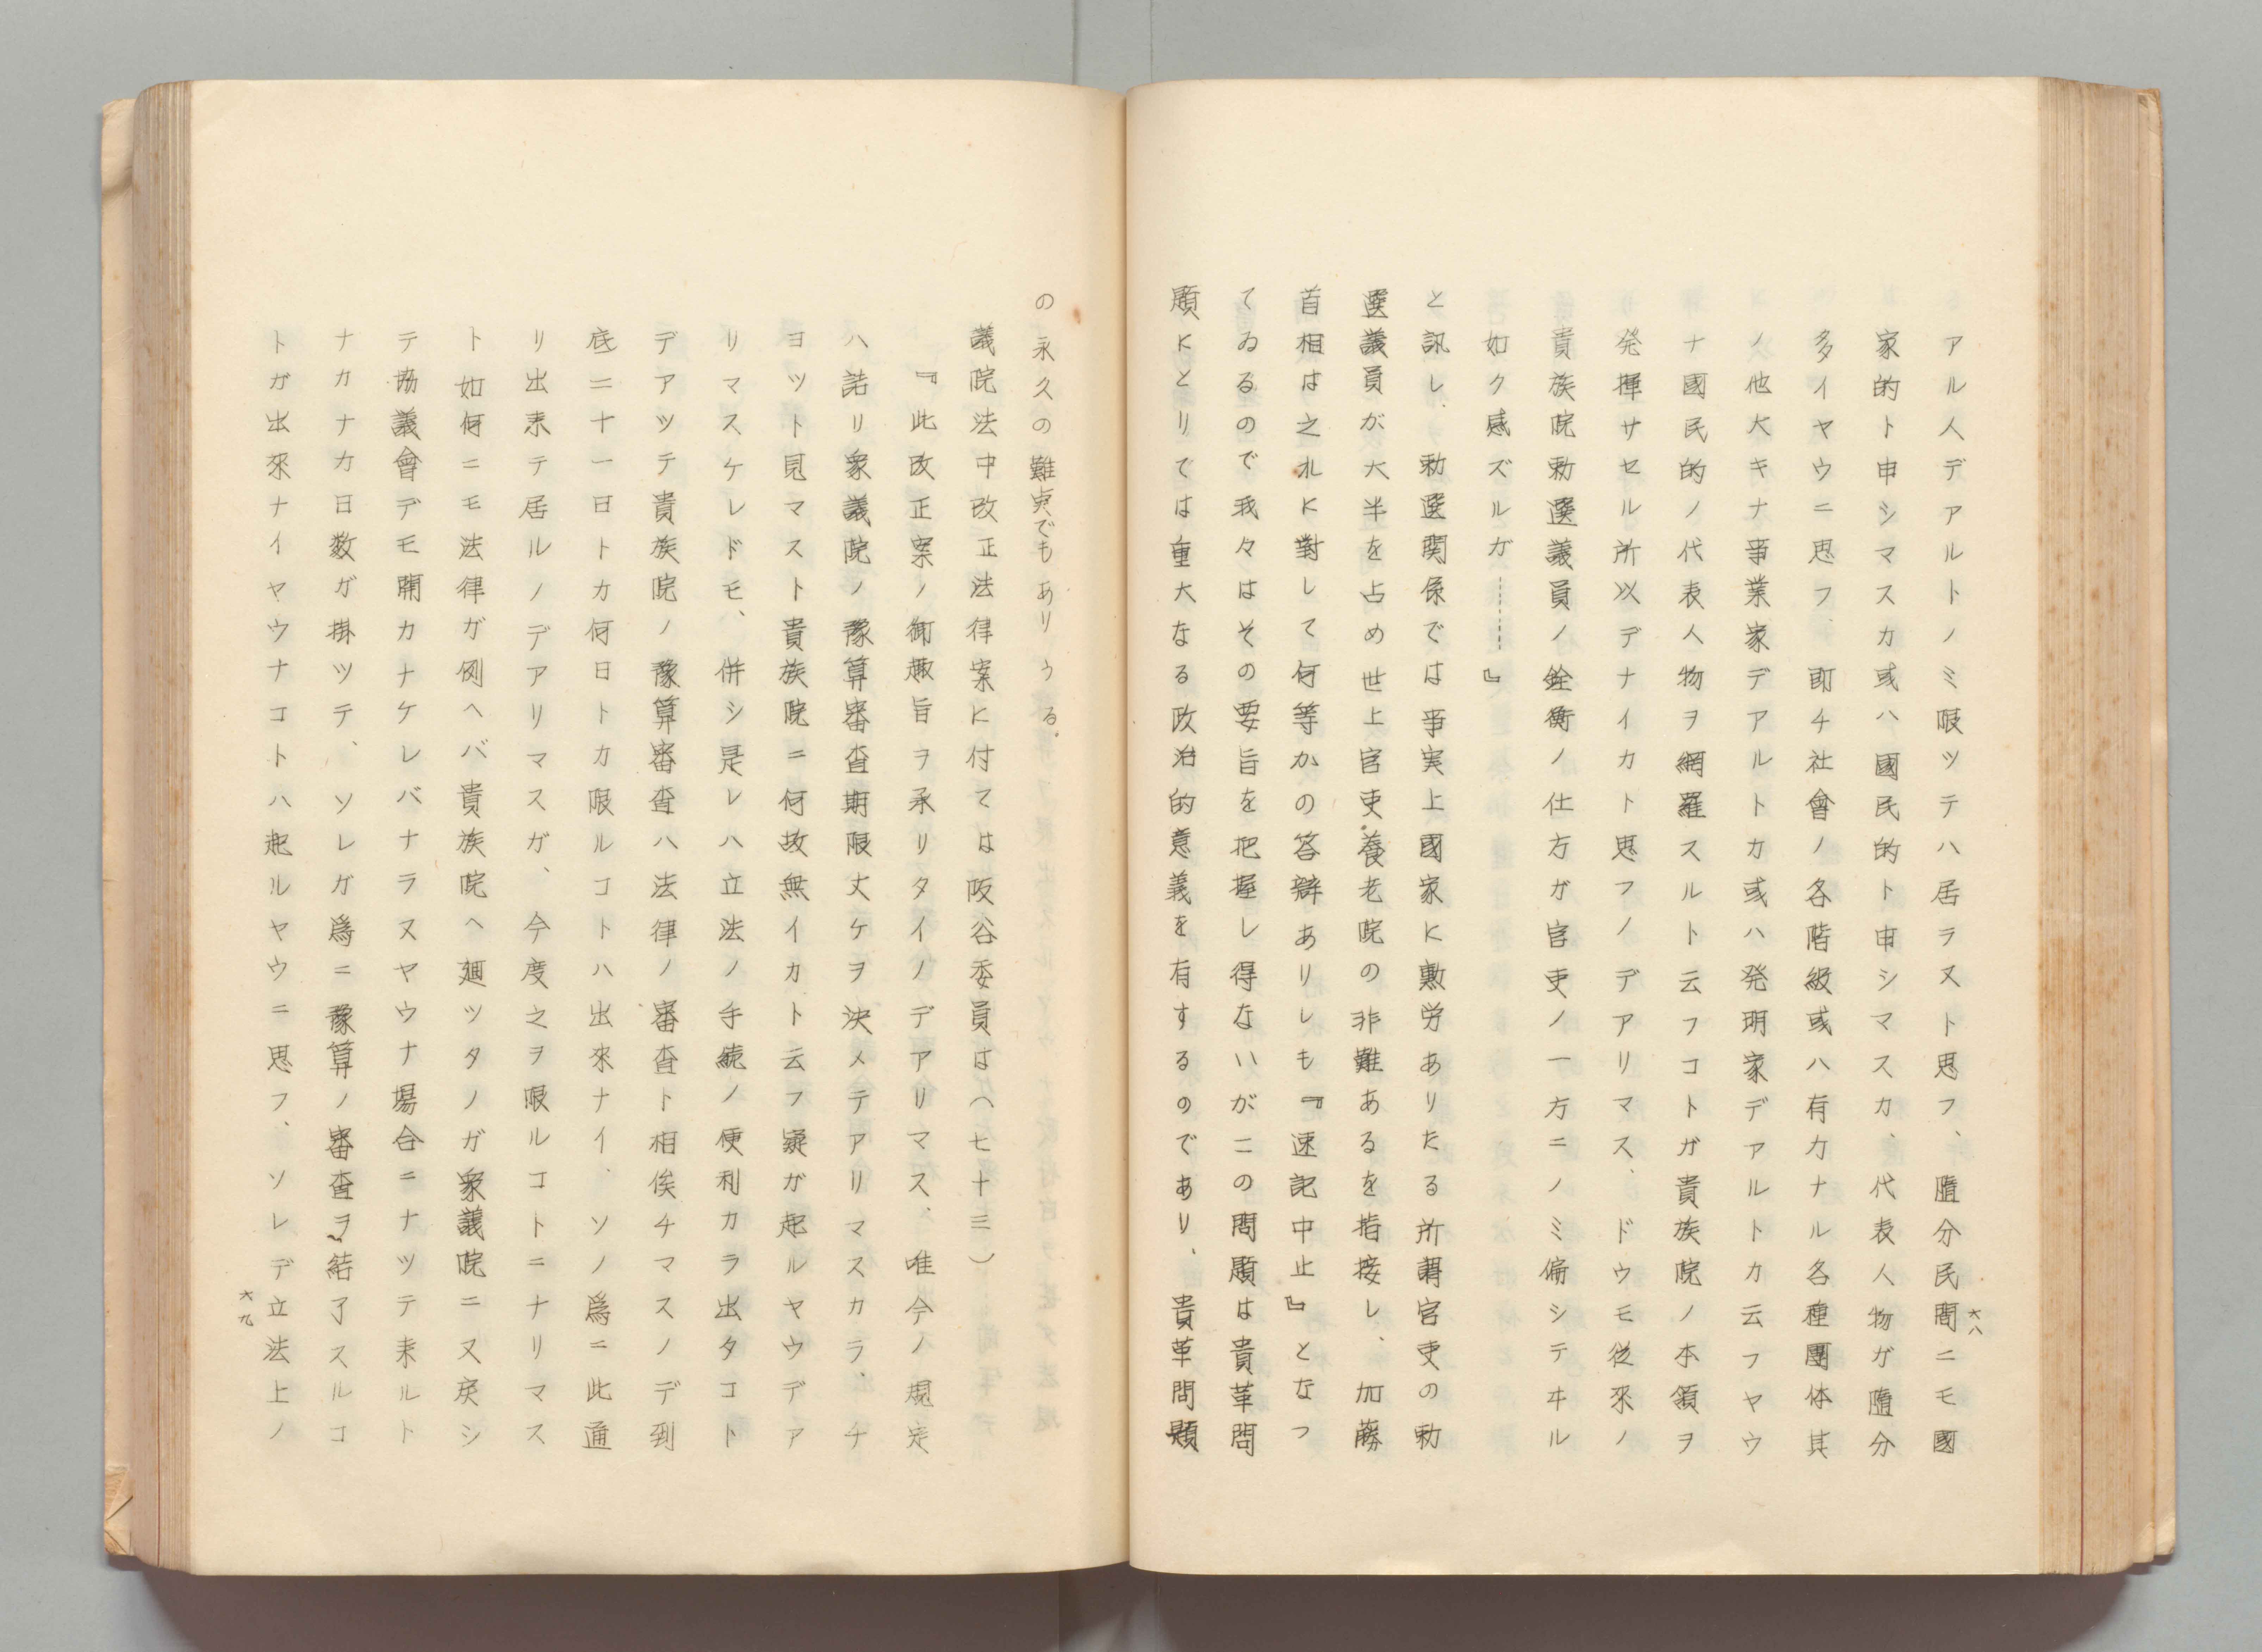 アル人デアルトノミ限ツテハ居ラヌト思フ、随分民間ニモ國
家的ト申シマスカ或ハ國民的ト申シマスカ、代表人物ガ随分
多イヤウニ思フ、即チ社會ノ各階級或ハ有力ナル各種團体其
ノ他大キナ事業家デアルトカ或ハ発明家デアルトカ云フヤウ
ナ國民的ノ代表人物ヲ網羅スルト云フコトガ貴族院ノ本領ヲ
発揮サセル所以デナイカト思フノデアリマス、ドウモ従來ノ
貴族院勅選議員ノ銓衡ノ仕方ガ官吏ノ一方ニノミ偏シテヰル
如ク感ズルガ………』
と訊し、勅選関係では事実上國家に勲労ありたる所謂官吏の勅
選議員が大半を占め世上官吏養老院の非難あるを指接し、加藤
首相は之れに對して何等かの答辯ありしも『速記中止』となつ
てゐるので我々はその要旨を把握し得ないがこの問題は貴革問
題にとりては重大なる政治的意義を有するのであり、貴革問題
六八
の永久の難点でもありうる。
議院法中改正法律案に付ては阪谷委員は（七十三）
『此改正案ノ御趣旨ヲ承リタイノデアリマス、唯今ノ規定
ハ諾リ衆議院ノ豫算審査期限丈ケヲ決メテアリマスカラ、チ
ヨツト見マスト貴族院ニ何故無イカト云フ疑ガ起ルヤウデア
リマスケレドモ、併シ是レハ立法ノ手続ノ便利カラ出タコト
デアツテ貴族院ノ豫算審査ハ法律ノ審査ト相俟チマスノデ到
底二十一日トカ何日トカ限ルコトハ出來ナイ、ソノ爲ニ此通
リ出来テ居ルノデアリマスガ、今度之ヲ限ルコトニナリマス
ト如何ニモ法律ガ例ヘバ貴族院ヘ廻ツタノガ衆議院ニ又戻シ
テ協議會デモ開カナケレバナラヌヤウナ場合ニナツテ来ルト
ナカナカ日数ガ掛ツテ、ソレガ爲ニ豫算ノ審査ヲ結了スルコ
トガ出來ナイヤウナコトハ起ルヤウニ思フ、ソレデ立法上ノ
六九